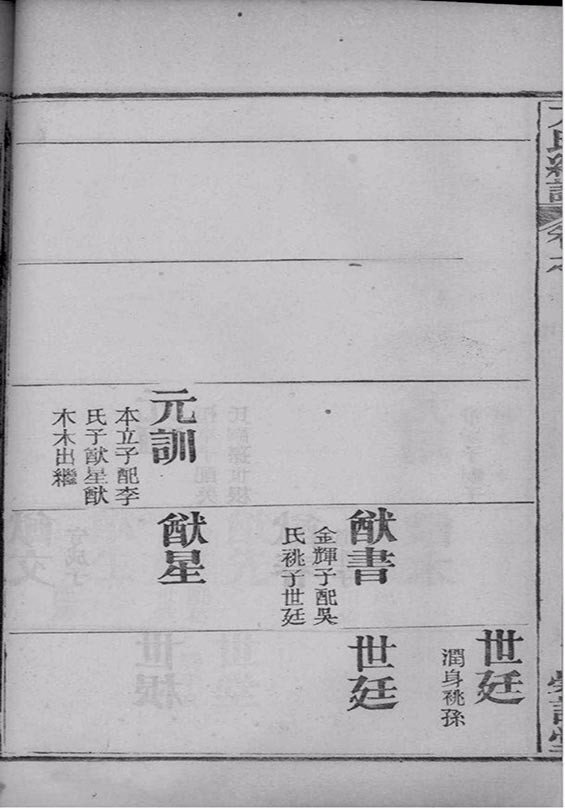 氏統譜
世廷
潤身祧孫
猷書
金輝子配吳
氏祧子世廷
世廷
元訓
本立子配李
氏子猷星猷
木木出繼
猷星